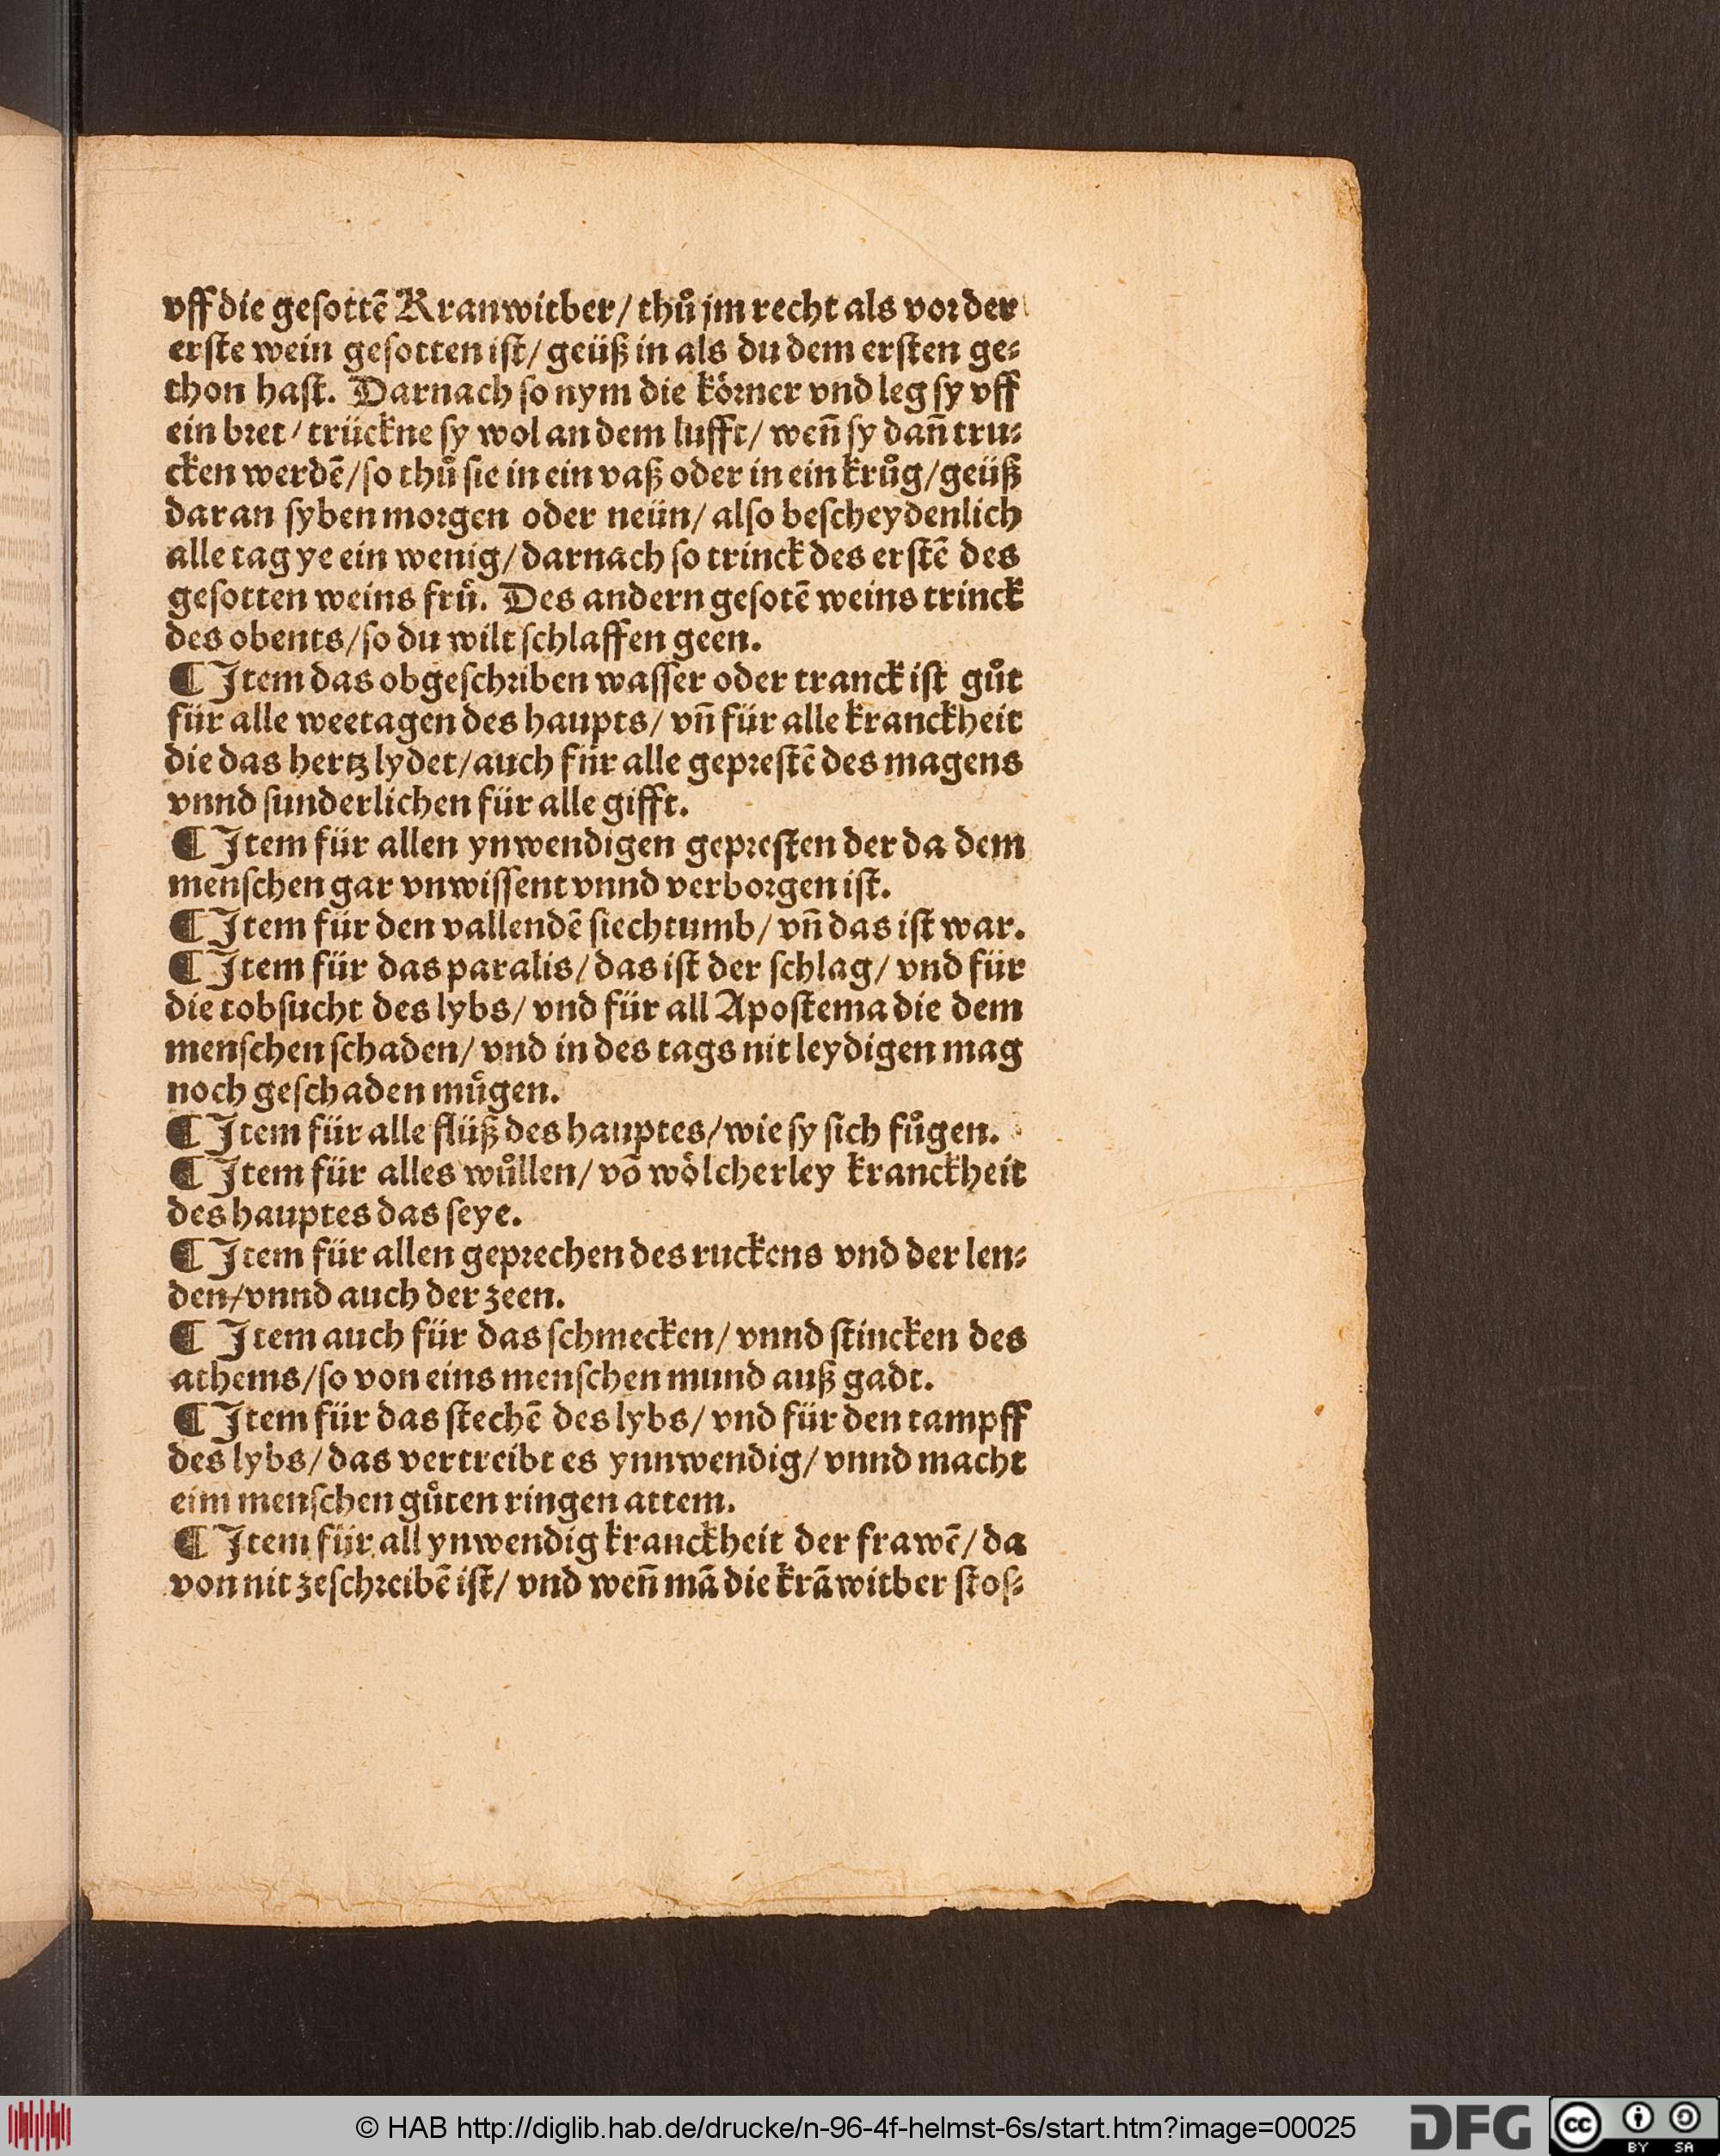 vff die geſottē Kranwitber/ thuͦ jm recht als voꝛ der
erſte wein geſotten iſt/ geüß in als du dem erſten ge⸗
thon haſt. Darnach ſo nym die koͤꝛner vnd leg ſy vff
ein bꝛet/ trückne ſy wol an dem lufft/ weñ ſy dañ tru⸗
cken werdē/ ſo thuͦ ſie in ein vaß oder in ein kruͦg/ geüß
daran ſyben moꝛgen oder neün/ alſo beſcheydenlich
alle tag ye ein wenig/ darnach ſo trinck des erſtē des
geſotten weins fruͤ. Des andern geſotē weins trinck
des obents/ ſo du wilt ſchlaffen geen.
¶ Item das obgeſchꝛiben waſſer oder tranck iſt guͦt
für alle weetagen des haupts/ vñ für alle kranckheit
die das hertz lydet/ auch für alle gepꝛeſtē des magens
vnnd ſunderlichen für alle gifft.
¶ Item für allen ynwendigen gepꝛeſten der da dem
menſchen gar vnwiſſent vnnd verboꝛgen iſt.
¶ Item für den vallendē ſiechtumb/ vñ das iſt war.
¶ Item für das paralis/ das iſt der ſchlag/ vnd für
die tobſucht des lybs/ vnd für all Apoſtema die dem
menſchen ſchaden/ vnd in des tags nit leydigen mag
noch geſchaden muͤgen.
¶ Item für alle flüß des hauptes/ wie ſy ſich fuͦgen.
¶ Item für alles wuͦllen/ vō woͤlcherley kranckheit
des hauptes das ſeye.
¶ Item für allen gepꝛechen des ruckens vnd der len⸗
den/ vnnd auch der zeen.
¶ Item auch für das ſchmecken/ vnnd ſtincken des
athems/ ſo von eins menſchen mund auß gadt.
¶ Item für das ſtechē des lybs/ vnd für den tampff
des lybs/ das vertreibt es ynnwendig/ vnnd macht
eim menſchen guͦten ringen attem.
¶ Item für all ynwendig kranckheit der frawē/ da
von nit zeſchꝛeibē iſt/ vnd weñ mā die krāwitber ſtoſ⸗
© HAB http://diglib.hab.de/drucke/n-96-4f-helmst-6s/start.htm?image=00025
DFG
cc BY SA